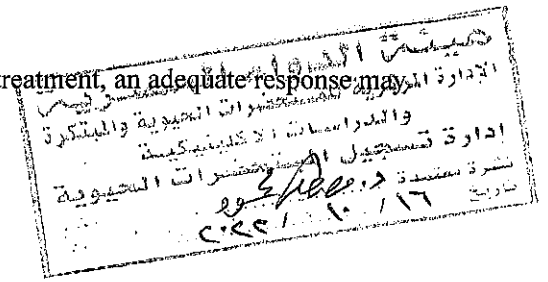 treatment, an adequate response may
هيئة الدواء المصرية
الإدارة المركزية للمستحضرات الحيوية والمبتكرة
والدراسات الاكلينيكية
إدارة تسجيل المستحضرات الحيوية
نشرة معتمدة د.
تاريخ ١٦ / ١٠ / ٢٠٢٢